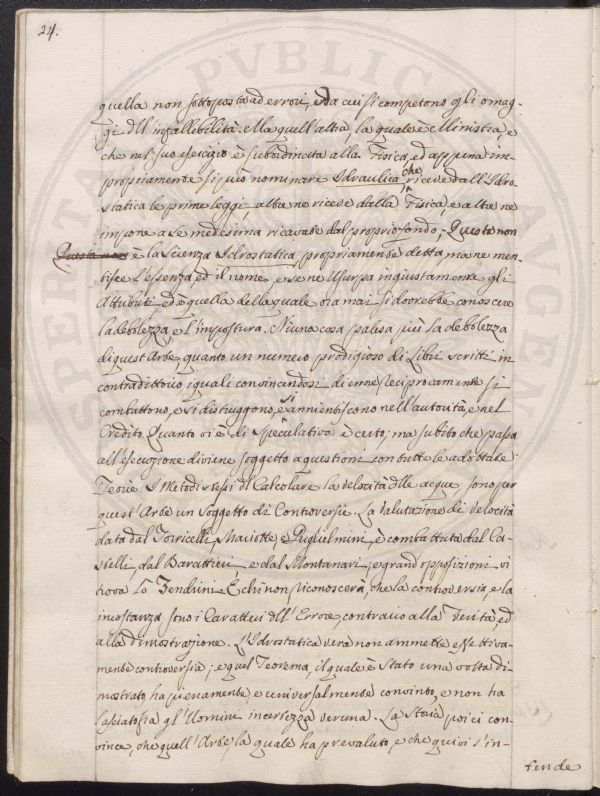 24.
quella non sottoposta ad errori, e da cui si competono gli omag-
gi dell'infallibilità. Ma quell'altra, la quale è Ministra, e
che nel suo esercizio è subordinata alla Fisica, ed appena im-
propriamente si può nominare Idraulica, che riceve dall'Idro-
statica le prime leggi, altre ne riceve dalla Fisica, e altre ne
impone a se medesima ricavate dal proprio fondo; Questa non
Questa non è la Scienza Idrostatica propriamente detta, ma ne men-
tisce l'essenza, ed il nome, e se ne usurpa ingiustamente gli
Attributi, ed è quella della quale ora mai si dovrebbe conoscere
la debolezza, e l'impostura. Niuna cosa palesa più la debolezza
di quest'Arte, quanto un numero prodigioso di Libri scritti in
contradittorio, i quali convincendosi di errore reciprocamente si
combattono, e si distruggono, e si annientiscono nell'autorità, e nel
Credito. Quanto vi è di speculativo è certo; ma subito che passa
all'esecuzione diviene soggetto a questioni con tutte le adottate
Teorie. I Metodi stessi di Calcolare la velocità delle acque, sono per
quest'Arte un soggetto di Controversie. La Valutazione di velocità
data dal Torricelli, Mariotte, e Guglielmini, è combattuta dal Ca-
stelli, dal Barattieri, e dal Montanari; e grand'opposizioni vi
trova lo Zendrini. E chi non riconoscerà, che la controversia, e la
incostanza sono i Caratteri dell'Errore, contrario alla Verità, ed
alla dimostrazione. L'Idrostatica vera non ammette effettiva-
mente controversia; e quel Teorema, il quale è stato una volta di-
mostrato, ha pienamente, e universalmente convinto, e non ha
lasciato fra gl'Uomini incertezza veruna. La Storia poi ci con-
vince, che quell'Arte, la quale ha prevaluto, e che quivi s'in-
tende
SPERITA PVBLICA AVGEN